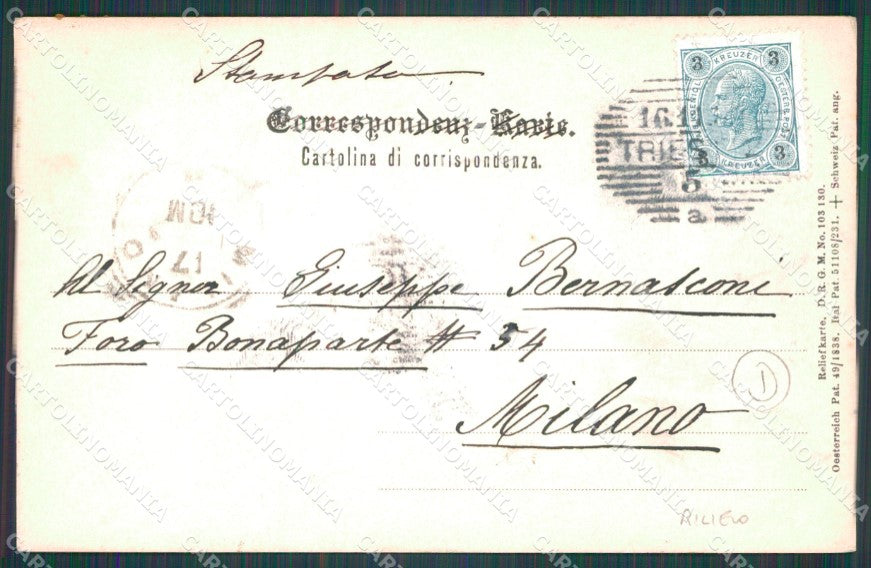 Stampata
Correspondenz-Karte.
Cartolina di corrispondenza.
3 KREUZER 3
3 KREUZER 3
16.1
TRIES
5
a
10M
17
Al Signor Giuseppe Bernasconi
Foro Bonaparte # 54
Milano
1
RILIEVO
Reliefkarte. D. R. G. M. No. 103 130.
Oesterreich Pat. 49/1838. Ital Pat. 51108/231. + Schweiz Pat. ang.
CARTOLINOMANIA